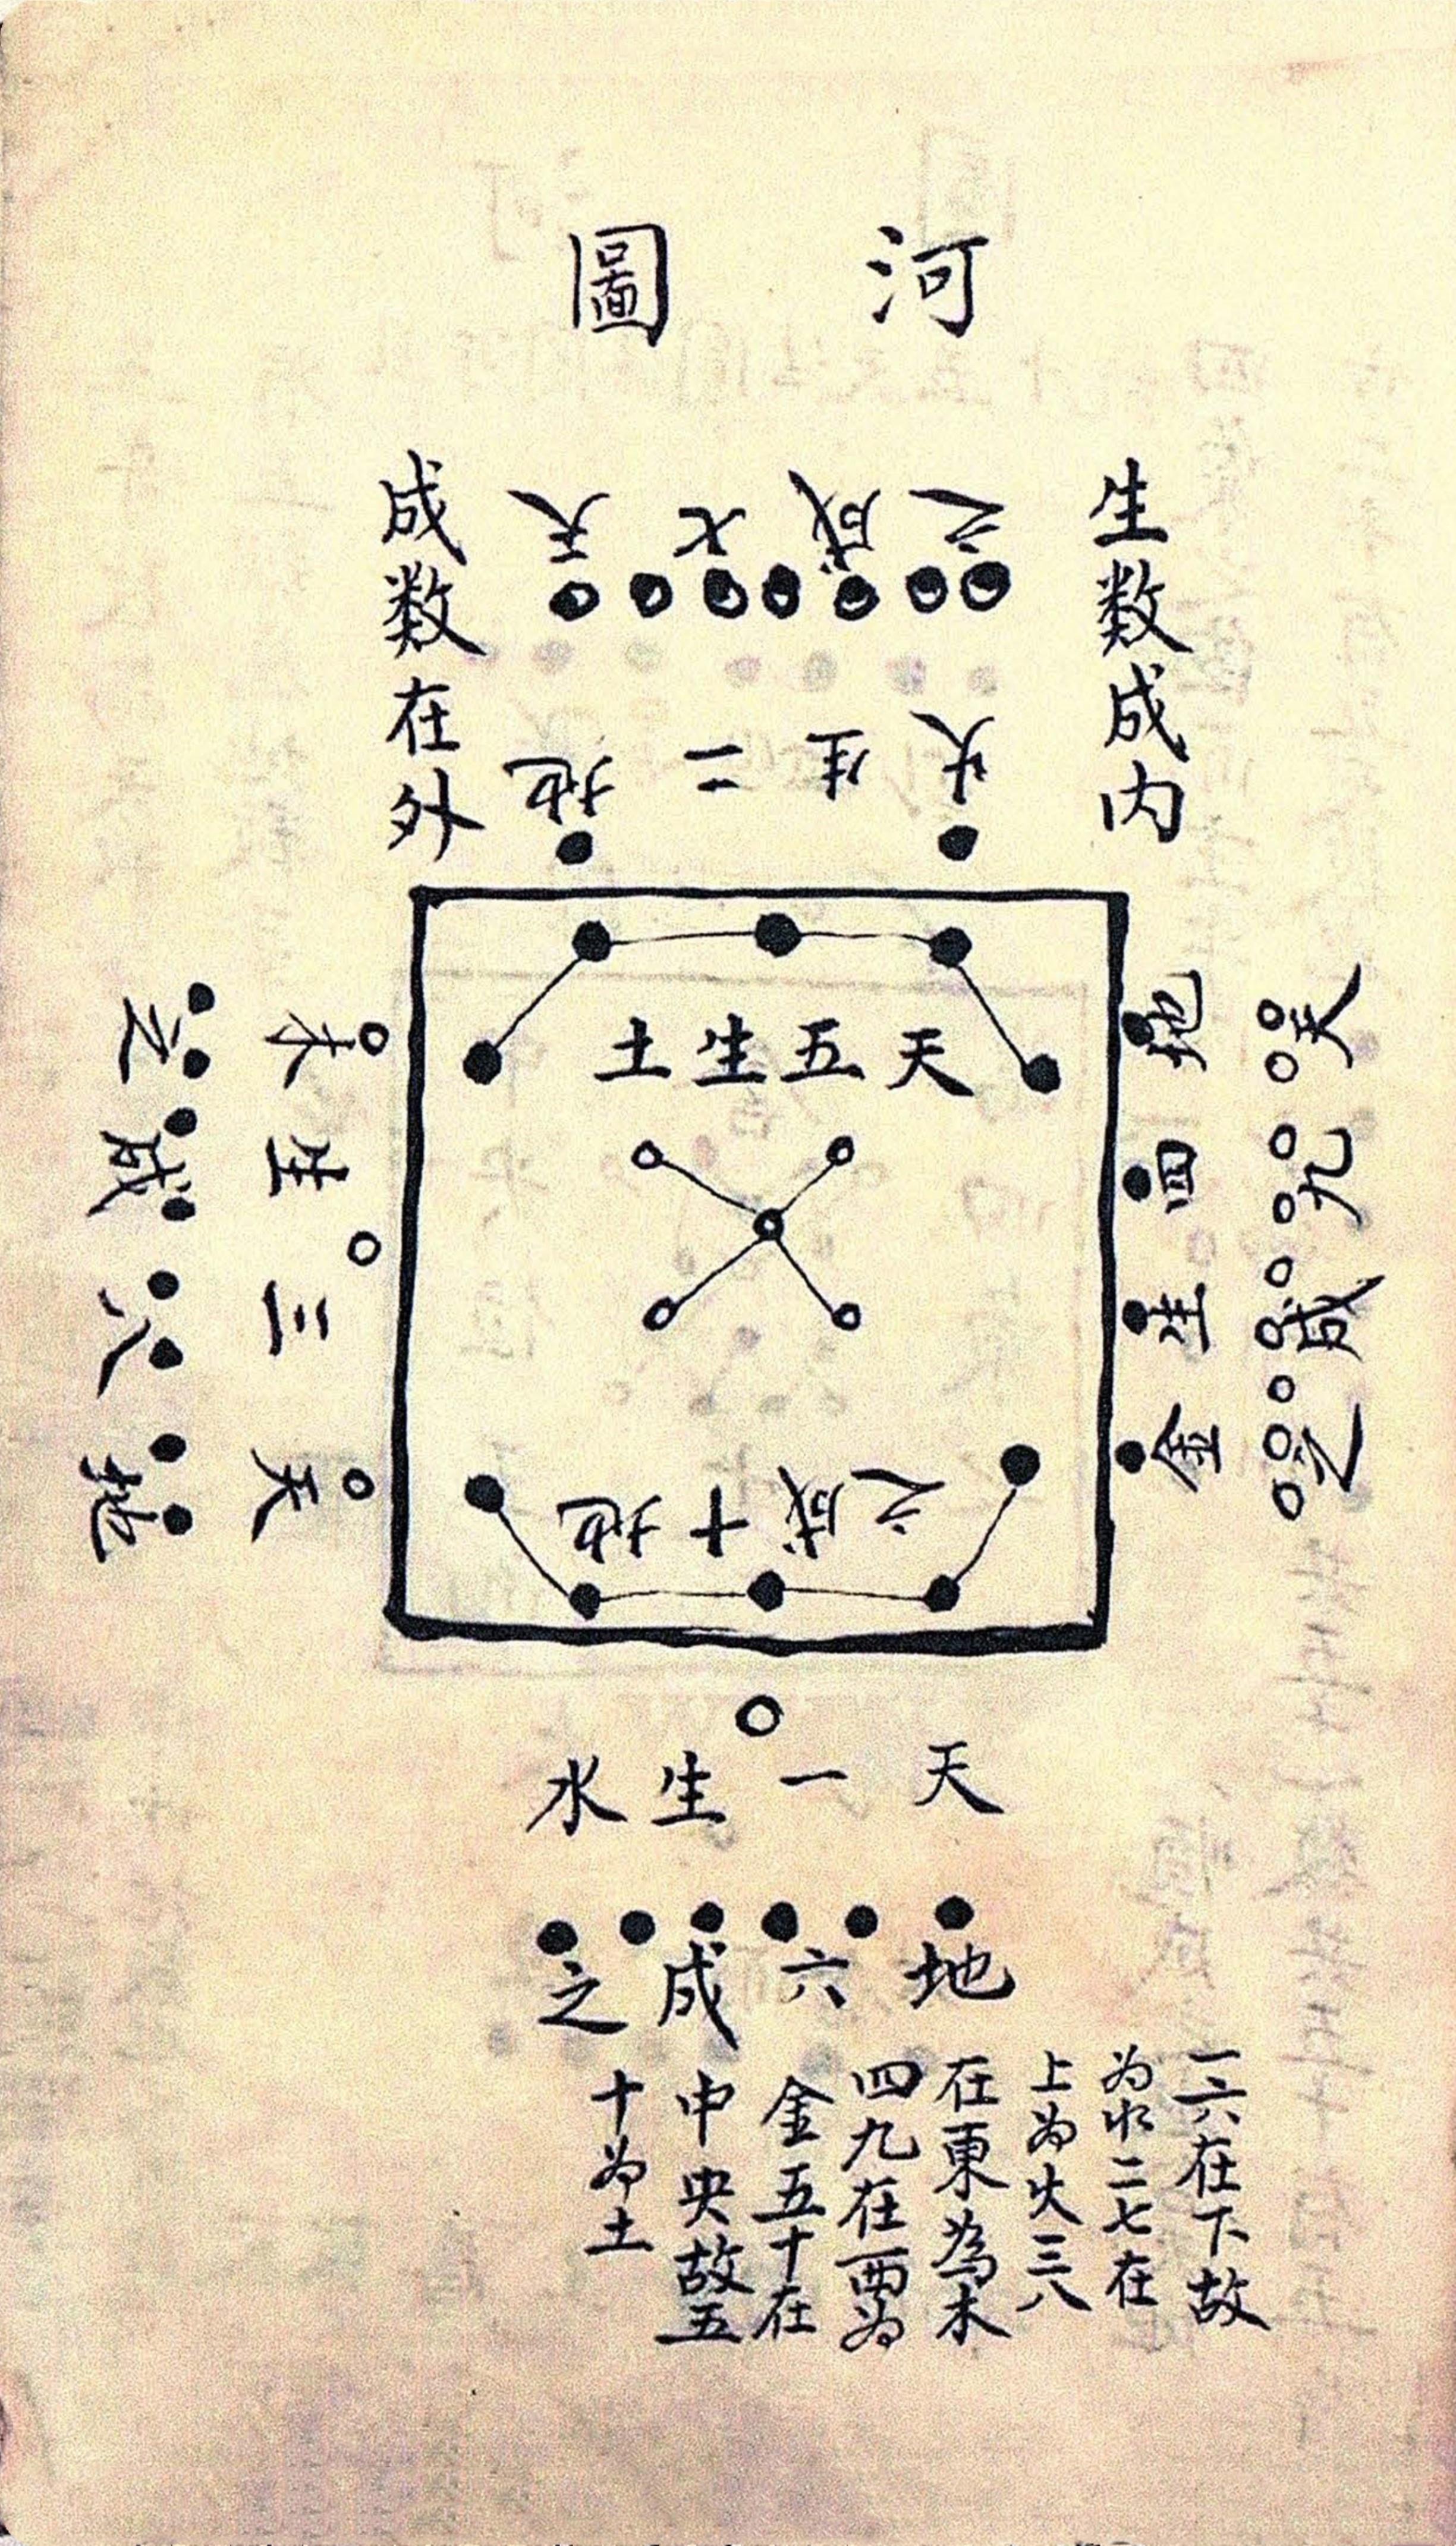 河圖
生数成内
成数在外
天七成之
地二生火
天五生土
地十成之
天三生木
地八成之
地四生金
天九成之
天一生水
地六成之
一六在下故
为水二七在
上为火三八
在東為木
四九在西为
金五十在
中央故五
十为土